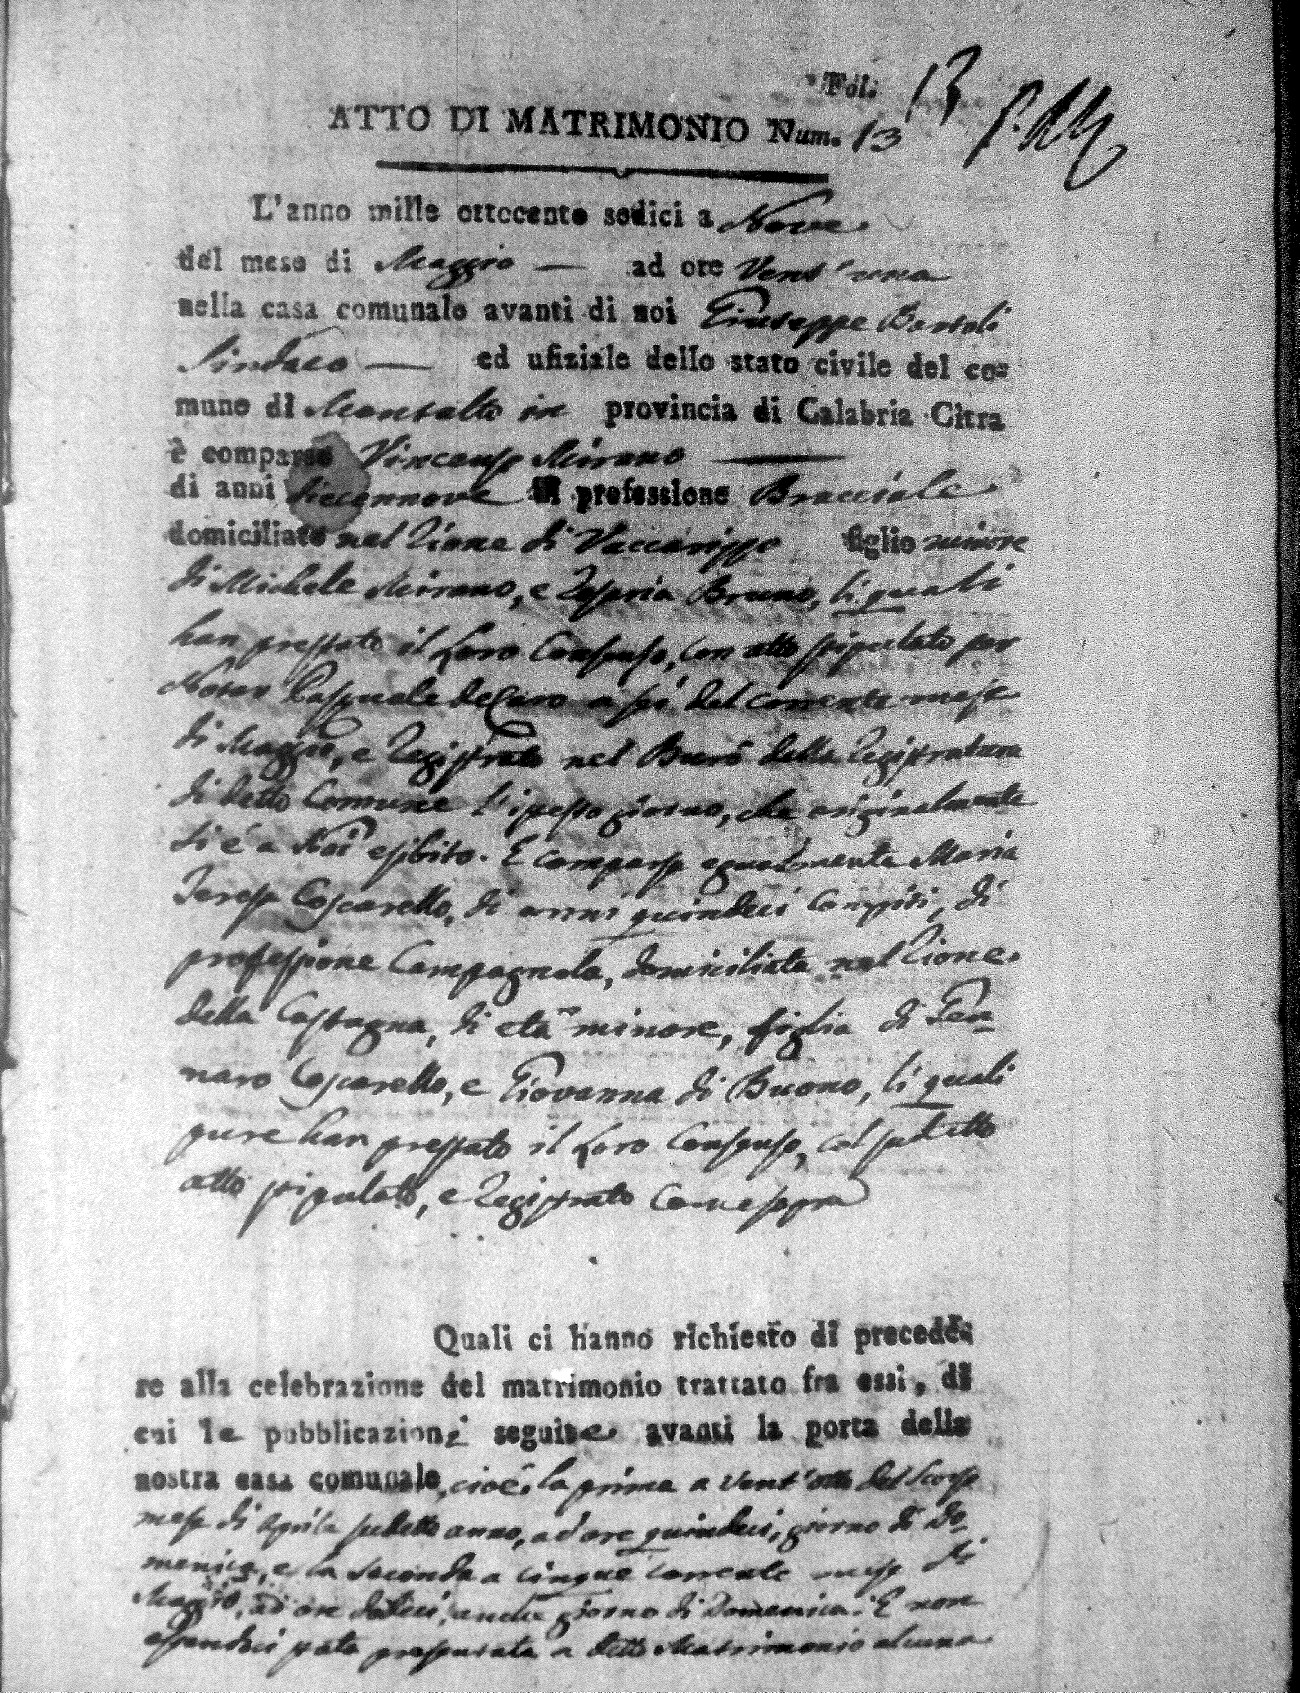 Fol. 13
ATTO DI MATRIMONIO Num. 13
L'anno mille ottocento sedici a Nove
del mese di Maggio — ad ore Vent'una
nella casa comunale avanti di noi Giuseppe Bertoli
Sindaco — ed ufiziale dello stato civile del co=
mune di Montalto in provincia di Calabria Citra
è comparso Vincenzo Mirano —
di anni Diecennove di professione Bracciale
domiciliato nel Rione di Vaccarizzo figlio minore
di Michele Mirano, e Zesaria Bruno, li quali
han prestato il Loro Consenso, con atto stipulato per
Notar Pasquale de Caro a sei del corrente mese
di Maggio, e Registrato nel Burò della Registratura
di detto Comune l'istesso giorno, che originalmente
si è a Noi esibito. E comparsa egualmente Maria
Teresa Coscarello, di anni quindeci compiti, di
professione Campagnola, domiciliata nel Rione
della Castagna, di età minore, figlia di Gen=
naro Coscarello, e Giovanna di Buono, li quali
pure han prestato il Loro Consenso, col sudetto
atto stipulato, e Registrato come sopra
Quali ci hanno richiesto di precede=
re alla celebrazione del matrimonio trattato fra essi, di
cui le pubblicazioni seguite avanti la porta della
nostra casa comunale, cioè, la prima a vent'otto del scorso
mese di Aprile sudetto anno, ad ore quindeci, giorno di Do=
menica, e la seconda a cinque corrente mese di
Maggio, ad ore dodeci, anche giorno di Domenica. E non
essendoci stata presentata a detto Matrimonio alcuna